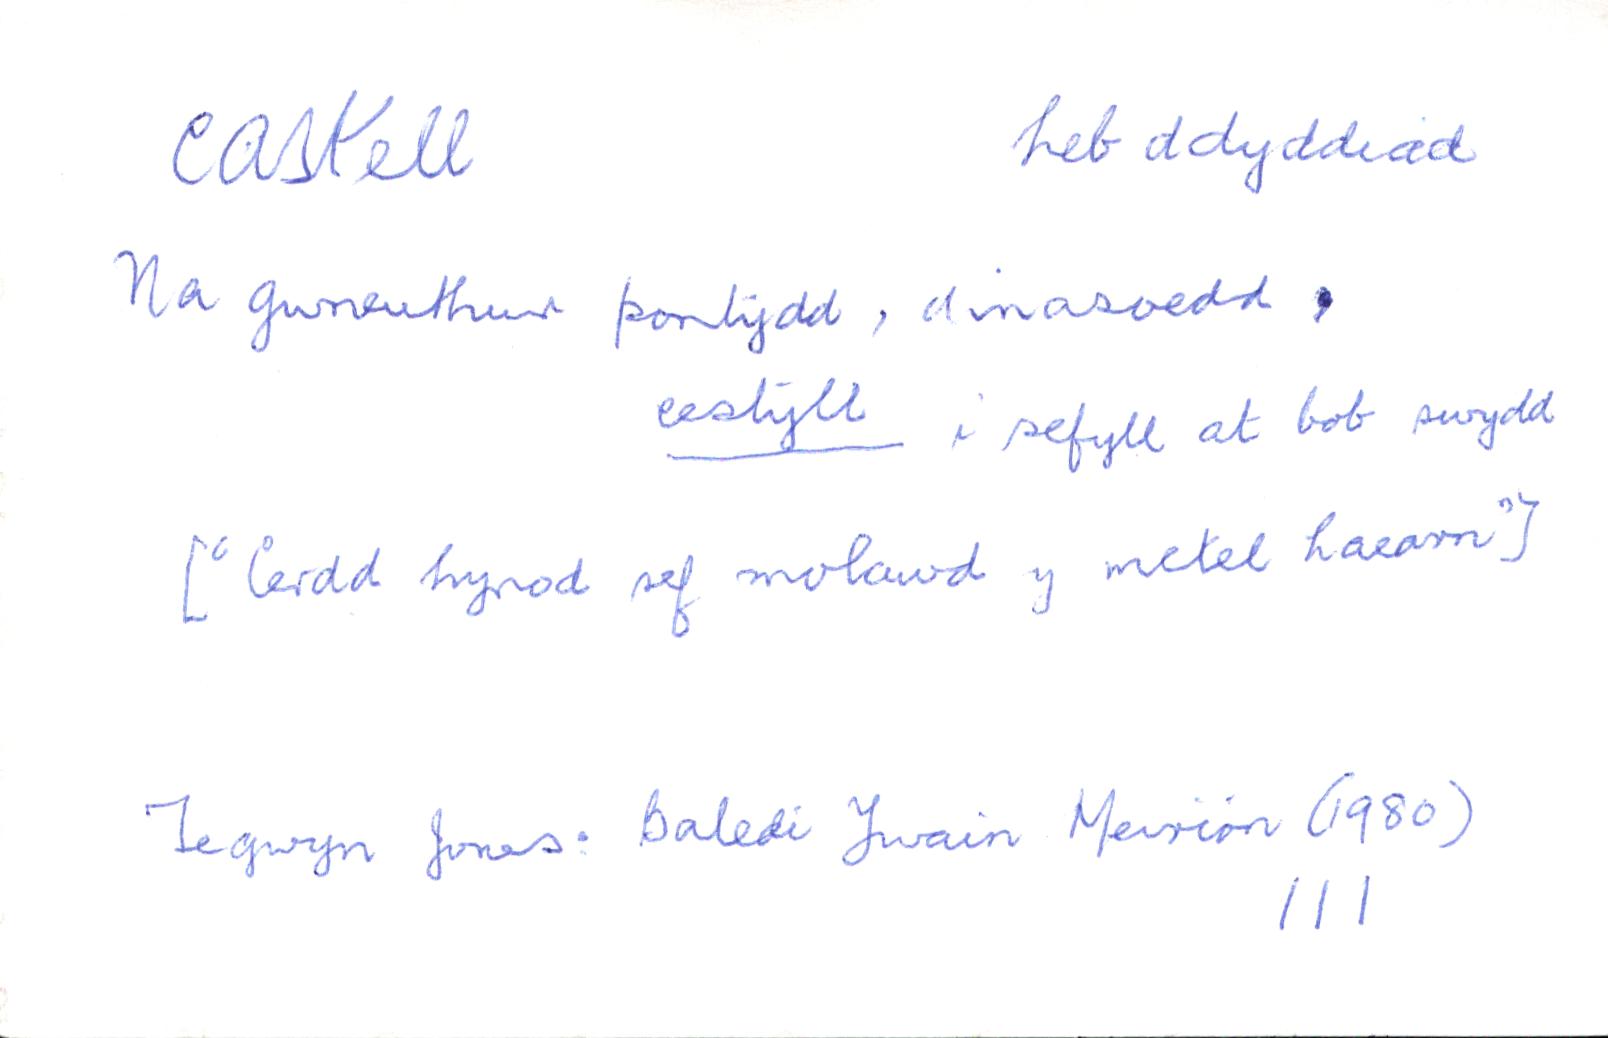 castell heb ddyddiad
Na gwneuthur pontydd, dinasoedd,
cestyll i sefyll at bob swydd
["Cerdd hynod sef molawd y metel haearn"]
Tegwyn Jones: Baledi Ywain Meirion (1980)
111